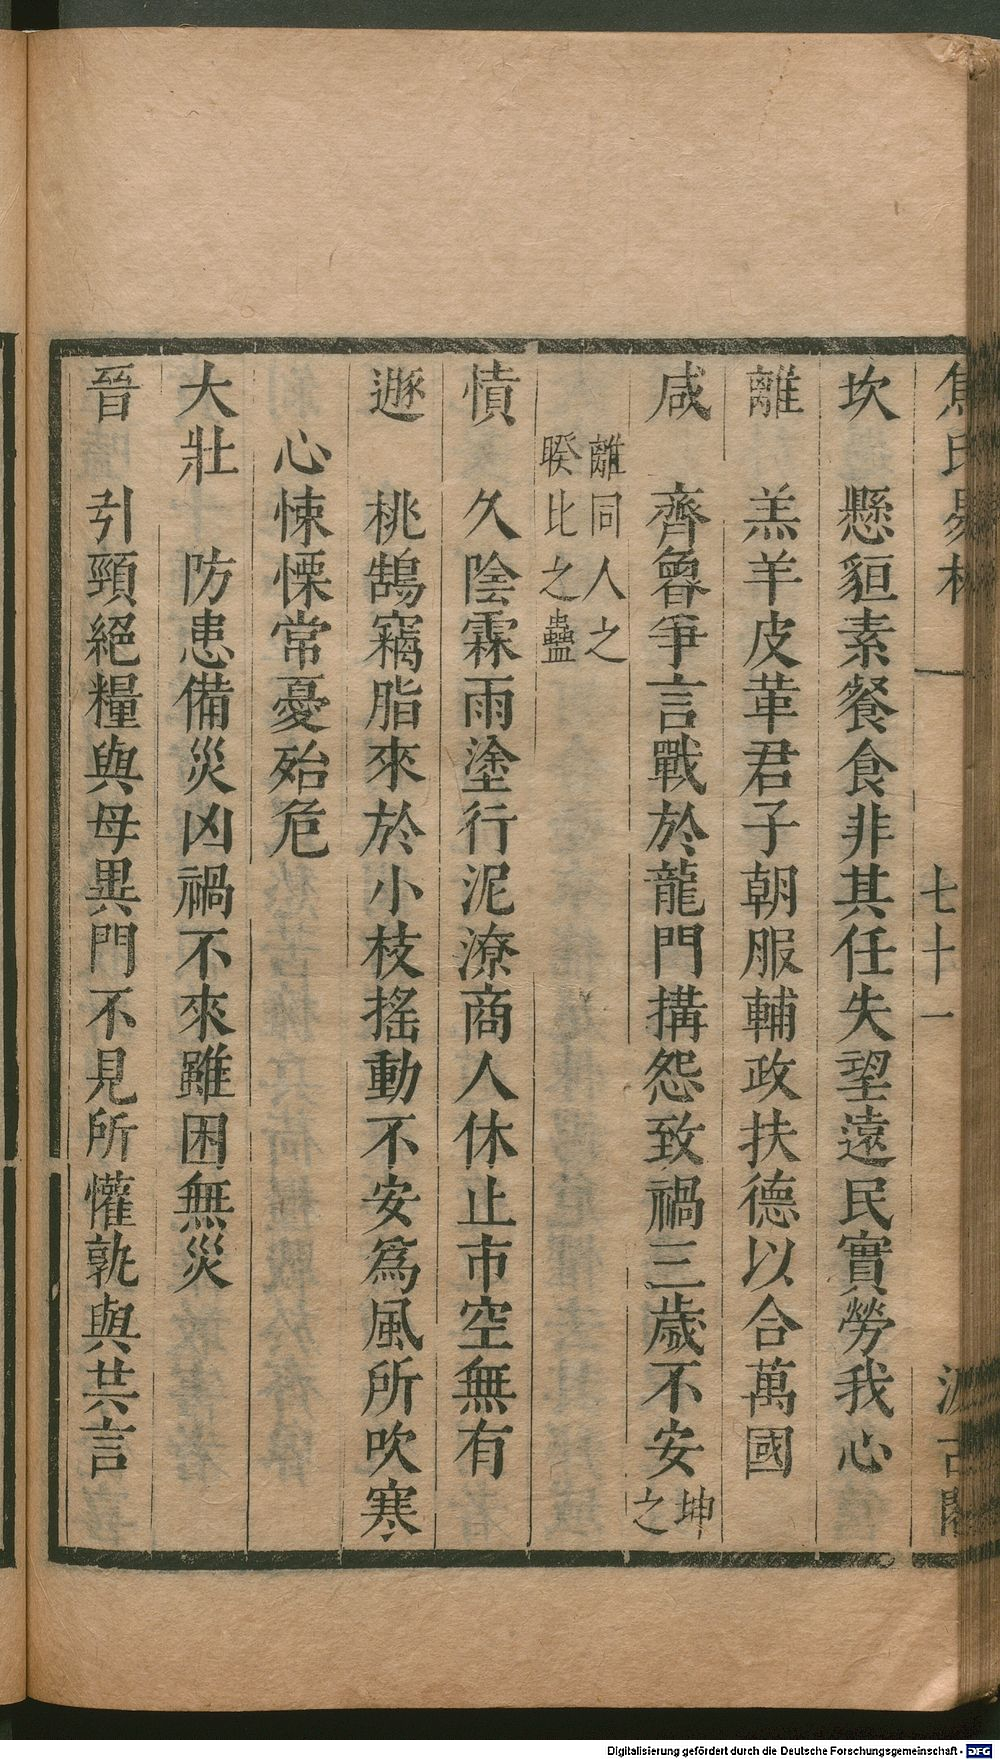 焦氏易林 一 七十一 汲古閣
坎 懸貆素餐食非其任失望遠民實勞我心
離 羔羊皮革君子朝服輔政扶德以合萬國
咸 齊魯爭言戰於龍門搆怨致禍三歲不安 坤之
離同人之
睽比之蠱
憤 久陰霖雨塗行泥潦商人休止市空無有
遯 桃鵠竊脂來於小枝搖動不安爲風所吹寒
心悚慄常憂殆危
大壯 防患備災凶禍不來雖困無災
晉 引頸絕糧與母異門不見所懽孰與共言
Digitalisierung gefördert durch die Deutsche Forschungsgemeinschaft - DFG